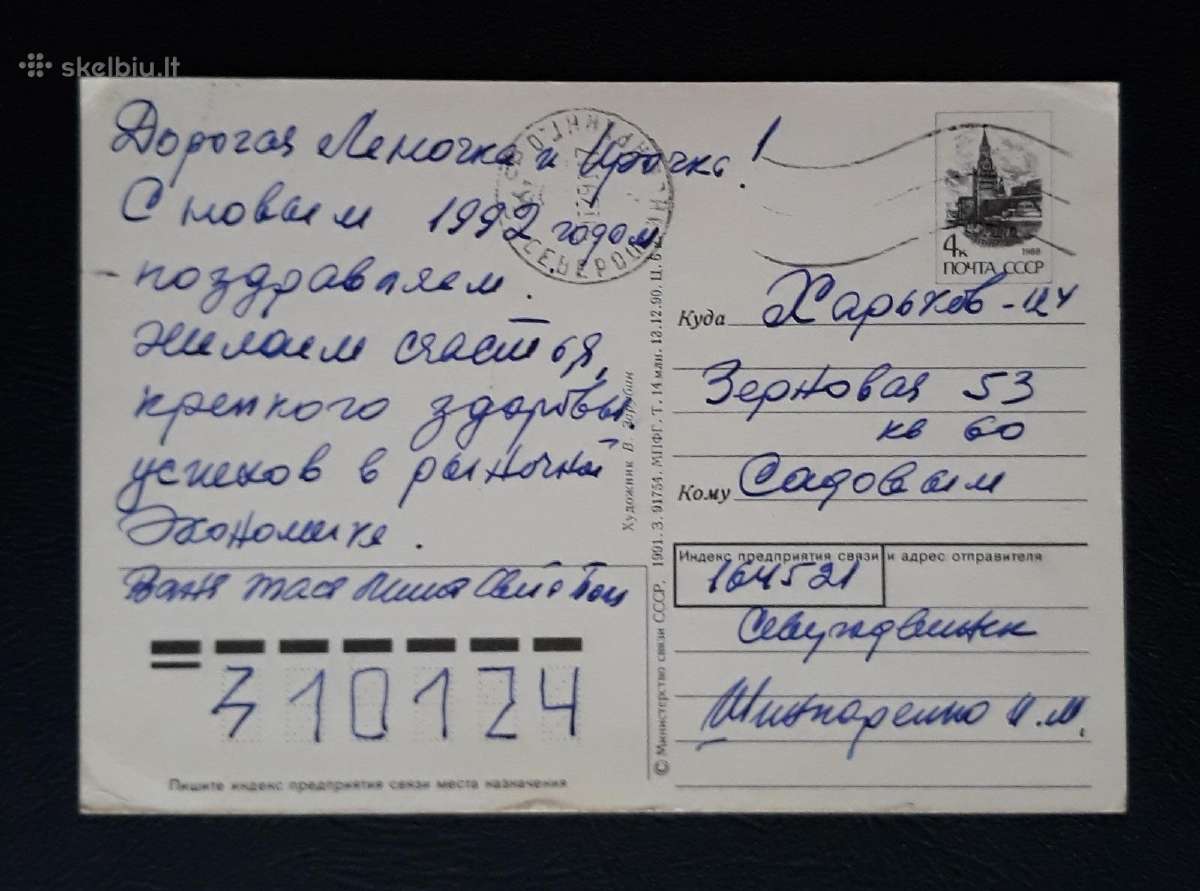 skelbiu.lt
Дорогая Леночка и Ирочка!
С новым 1992 годом
поздравляем.
Желаем счастья,
крепкого здоровья
успехов в рыночной
экономике.
Ваня Тася
310124
Пишите индекс предприятия связи места назначения
Художник В.
© Министерство связи СССР. 1991. З. 91754. МПФГ. Т. 14 млн. 13.12.90. Ц. 6 к.
СЕВЕРОДВИНСК
4к
1988
ПОЧТА СССР
Куда Харьков-124
Зерновая 53
кв 60
Кому Садовым
Индекс предприятия связи и адрес отправителя
164521
Северодвинск
Н.М.